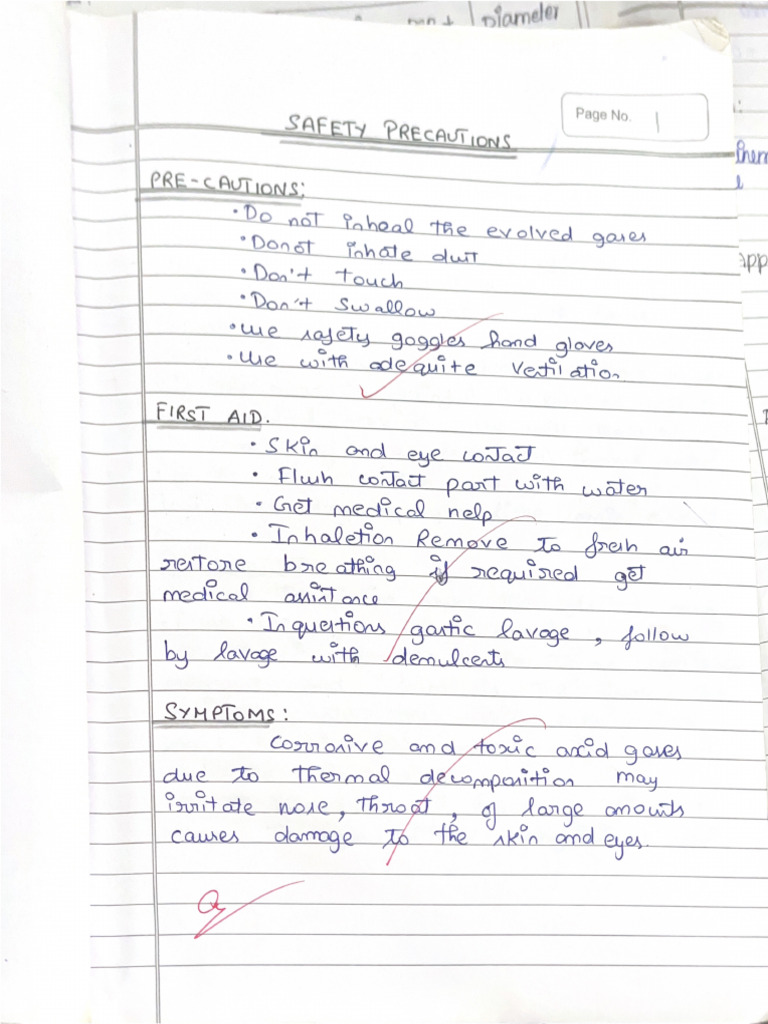 Diameter
Page No. 1
SAFETY PRECAUTIONS
PRE-CAUTIONS:
• Do not inheal the evolved gases
• Donot inhale dust
• Don't touch
• Don't swallow
• use safety goggles hand gloves
• use with adequite vetilation
FIRST AID.
• Skin and eye contact
• Flush contact part with water
• Get medical help
• Inhaletion Remove to fresh air
restore breathing if required get
medical assistance
• In questions gastic lavage, follow
by lavage with demulcents
SYMPTOMS:
corrosive and toxic acid gases
due to thermal decomposition may
irritate nose, throat, of large amounts
causes damage to the skin and eyes.